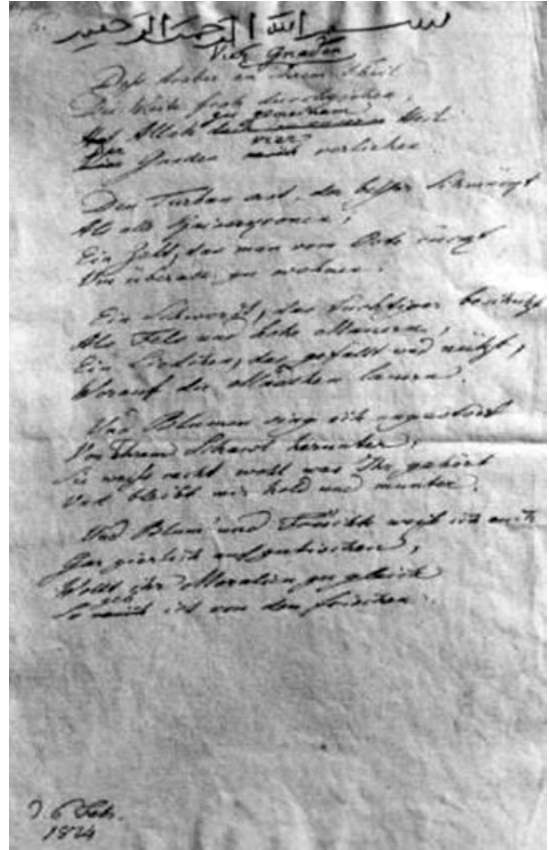 بسم الله الرحمن الرحيم
Vier Gnaden
Dass Araber an ihrem Theil
Die Weite froh durchziehen,
Hat Allah zu gemeinem Heil
Der Gnaden vier verliehen.
Den Turban erst, der besser schmückt
Als alle Kaiserkronen;
Ein Zelt, das man vom Orte rückt
Um überall zu wohnen.
Ein Schwerdt, das tüchtiger beschützt
Als Fels und hohe Mauern,
Ein Liedchen, das gefällt und nützt,
Worauf die Mädchen lauern.
Und Blumen sing ich ungestört
Von Ihrem Schawl herunter,
Sie weiss recht wohl was Ihr gehört
Und bleibt mir hold und munter.
Und Blum' und Früchte weiss ich euch
Gar zierlich aufzutischen,
Wollt ihr Moralien zugleich
So geb ich von den frischen.
d. 6 Febr.
1814